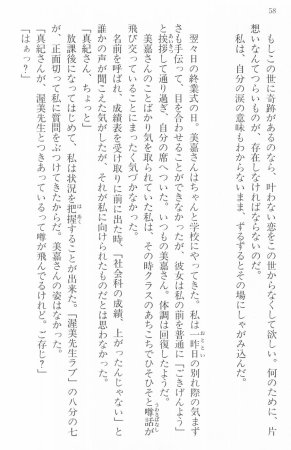 58
もしこの世に奇跡があるのなら、叶わない恋をこの世からなくして欲しい。何のために、片
思いなんてつらいものが、存在しなければならないのだ。
私は、自分の涙の意味もわからないまま、ずるずるとその場にしゃがみ込んだ。
翌々日の終業式の日。美嘉さんはちゃんと学校にやってきた。私は一昨日の別れ際の気まず
おととい
さも手伝って、目を合わせることができなかったが、彼女は私の前を普通に「ごきげんよう」
あいさつ
と挨拶して通り過ぎ、自分の席へついた。いつもの美嘉さん。体調は回復したようだ。
美嘉さんのことばかり気を取られていた私は、その時クラスのあちこちでひそひそと噂話が
うわさばなし
飛び交っていることにまったく気づかなかった。
名前を呼ばれ、成績表を受け取りに前に出た時、「社会科の成績、上がったんじゃない」と
誰かの声が聞こえた気がしたが、それが私に向けられたものだとは思わなかった。
「真紀さん、ちょっと」
放課後になってはじめて、私は状況を把握することが出来た。『渥美先生ラブ』の八分の七
はあく
が、正面切って私に質問をぶつけてきたからだ。美嘉さんの姿はなかった。
「真紀さんが、渥美先生とつきあっているって噂が飛んでるけれど、ご存じ？」
「はぁっ？」